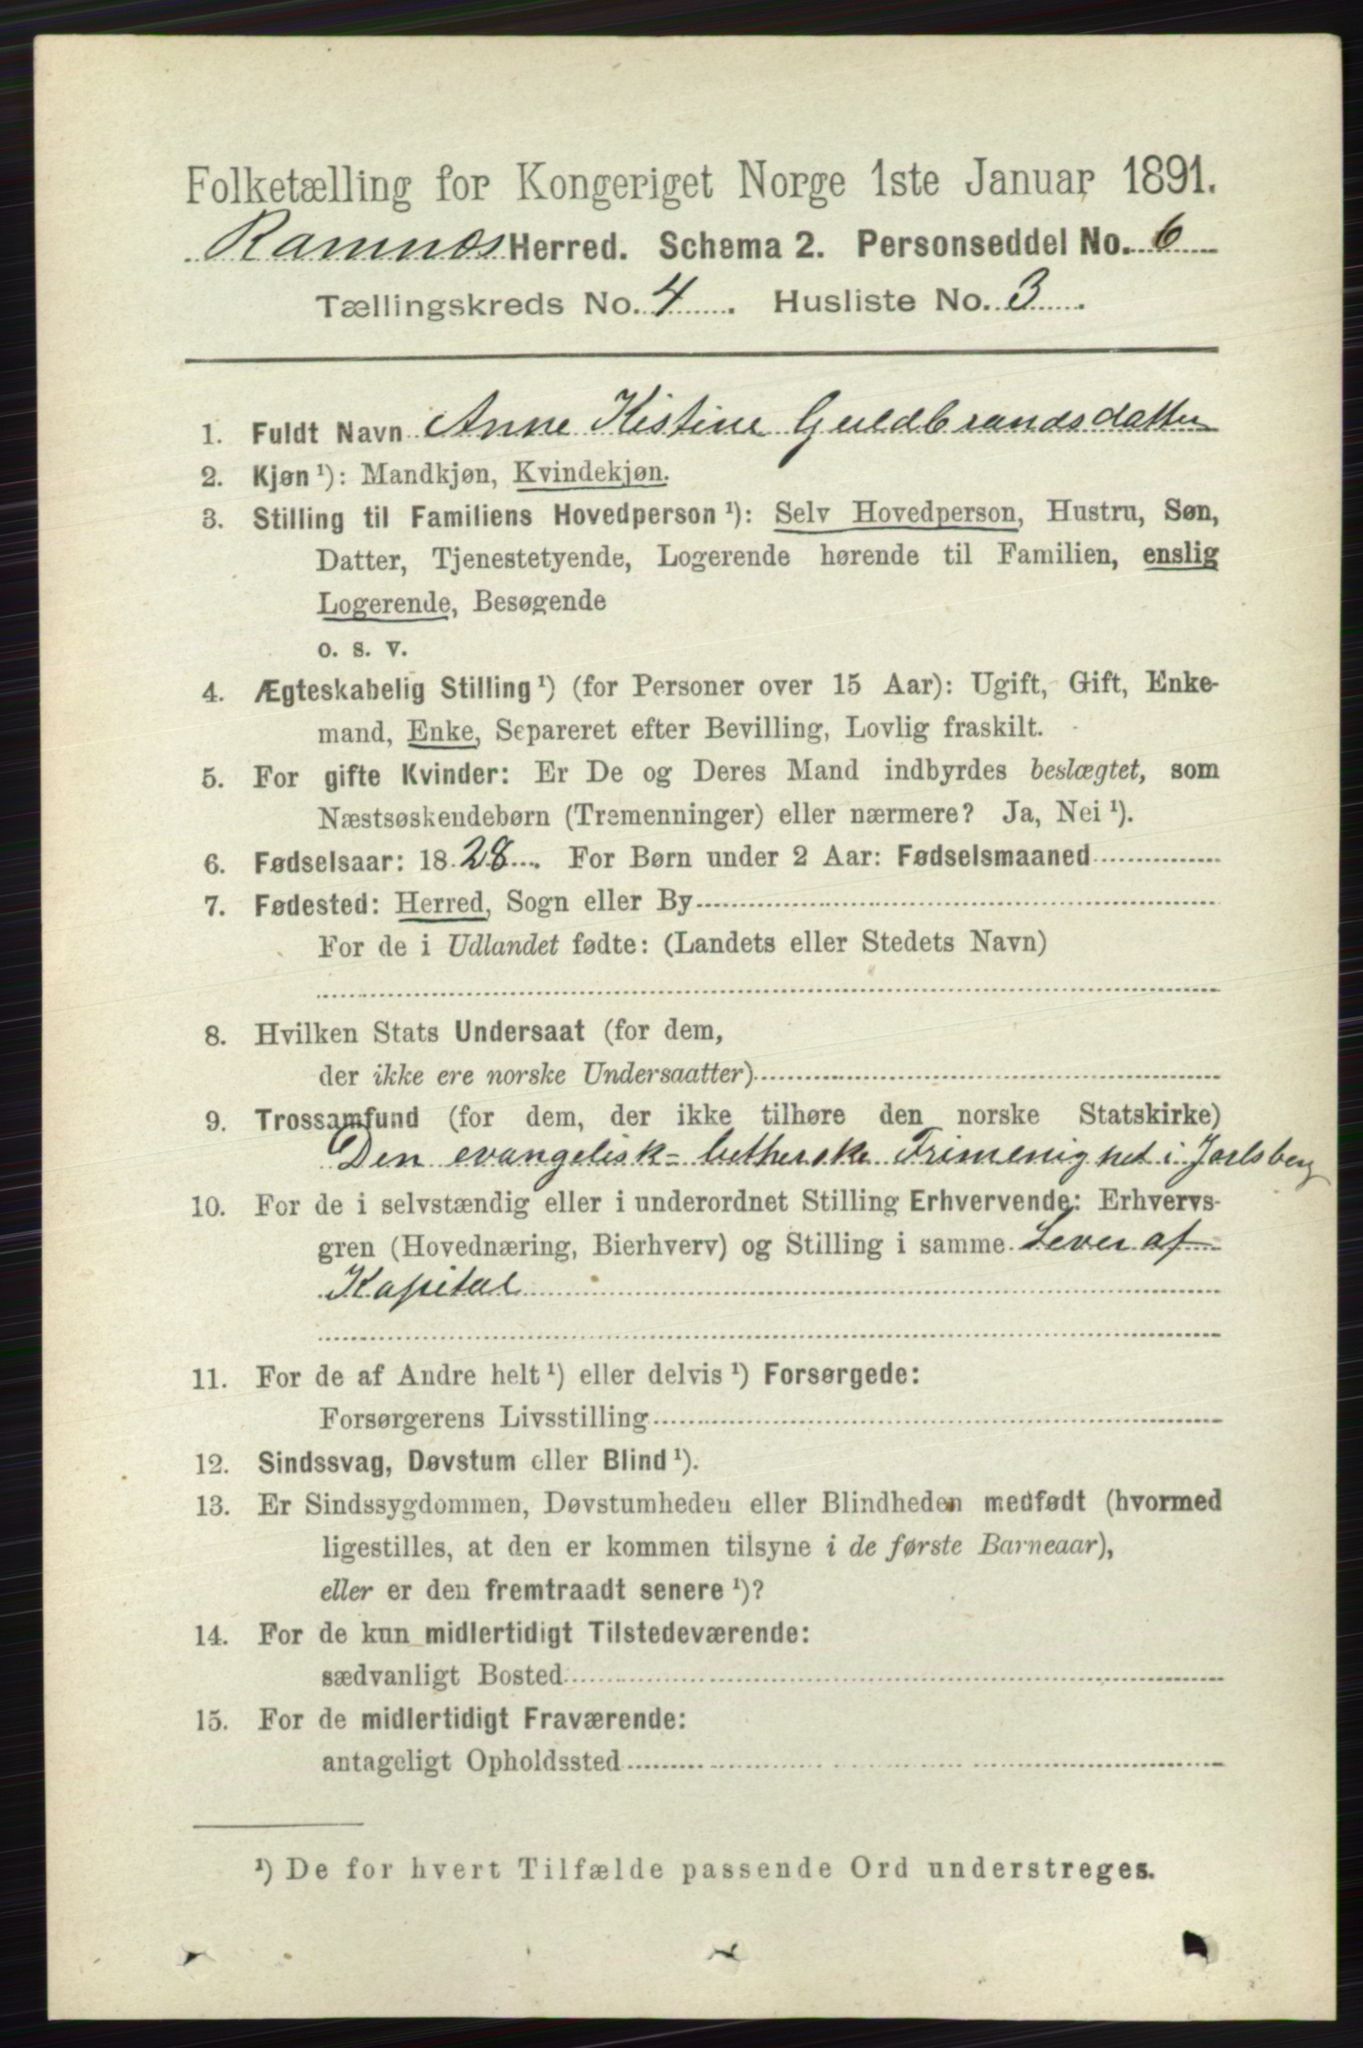 Folketælling for Kongeriget Norge 1ste Januar 1891.
Ramnæs Herred. Schema 2. Personseddel No. 6
Tællingskreds No. 4. Husliste No. 3.
1. Fuldt Navn Anne Kistine Guldbrandsdatter
2. Kjøn ¹): Mandkjøn, Kvindekjøn.
3. Stilling til Familiens Hovedperson ¹): Selv Hovedperson, Hustru, Søn,
Datter, Tjenestetyende, Logerende hørende til Familien, enslig
Logerende, Besøgende
o. s. v.
4. Ægteskabelig Stilling ¹) (for Personer over 15 Aar): Ugift, Gift, Enke-
mand, Enke, Separeret efter Bevilling, Lovlig fraskilt.
5. For gifte Kvinder: Er De og Deres Mand indbyrdes beslægtet, som
Næstsøskendebørn (Tremenninger) eller nærmere? Ja, Nei ¹).
6. Fødselsaar: 1828. For Børn under 2 Aar: Fødselsmaaned
7. Fødested: Herred, Sogn eller By
For de i Udlandet fødte: (Landets eller Stedets Navn)
8. Hvilken Stats Undersaat (for dem,
der ikke ere norske Undersaatter)
9. Trossamfund (for dem, der ikke tilhøre den norske Statskirke)
Den evangelisk-lutherske Frimenighed i Jarlsberg
10. For de i selvstændig eller i underordnet Stilling Erhvervende: Erhvervs-
gren (Hovednæring, Bierhverv) og Stilling i samme Lever af
Kapital
11. For de af Andre helt ¹) eller delvis ¹) Forsørgede:
Forsørgerens Livsstilling
12. Sindssvag, Døvstum eller Blind ¹).
13. Er Sindssygdommen, Døvstumheden eller Blindheden medfødt (hvormed
ligestilles, at den er kommen tilsyne i de første Barneaar),
eller er den fremtraadt senere ¹)?
14. For de kun midlertidigt Tilstedeværende:
sædvanligt Bosted
15. For de midlertidigt Fraværende:
antageligt Opholdssted
¹) De for hvert Tilfælde passende Ord understreges.